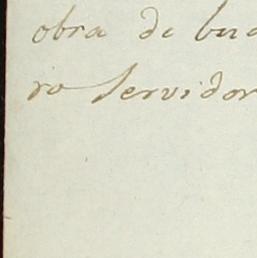 obra de bue
ro servidor